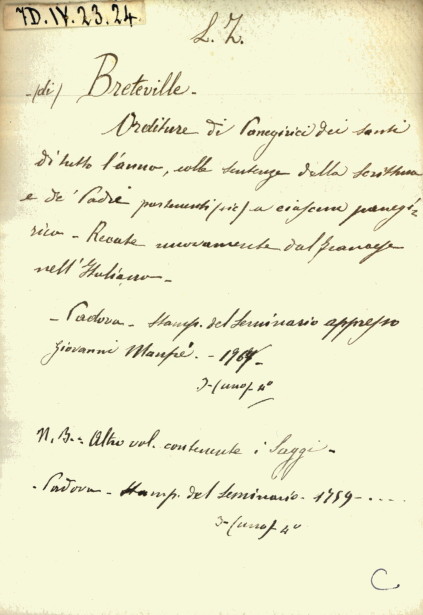 7D.IV.23.24
L. Z.
(di) Breteville -
Orditure di Panegirici dei santi
di tutto l'anno, colle sentenze della Scrittura
e de' Padri partenenti (sic) a ciascun panegi-
rico - Recate nuovamente dal francese
nell'Italiano -
- Padova - Stamp. del Seminario appresso
Giovanni Manfrè. -
3 - (uno) 4°
N. B. = Altro vol. contenente i Saggi -
- Padova - Stamp. del Seminario - 1759 - ....
3 - (uno) 4°
C